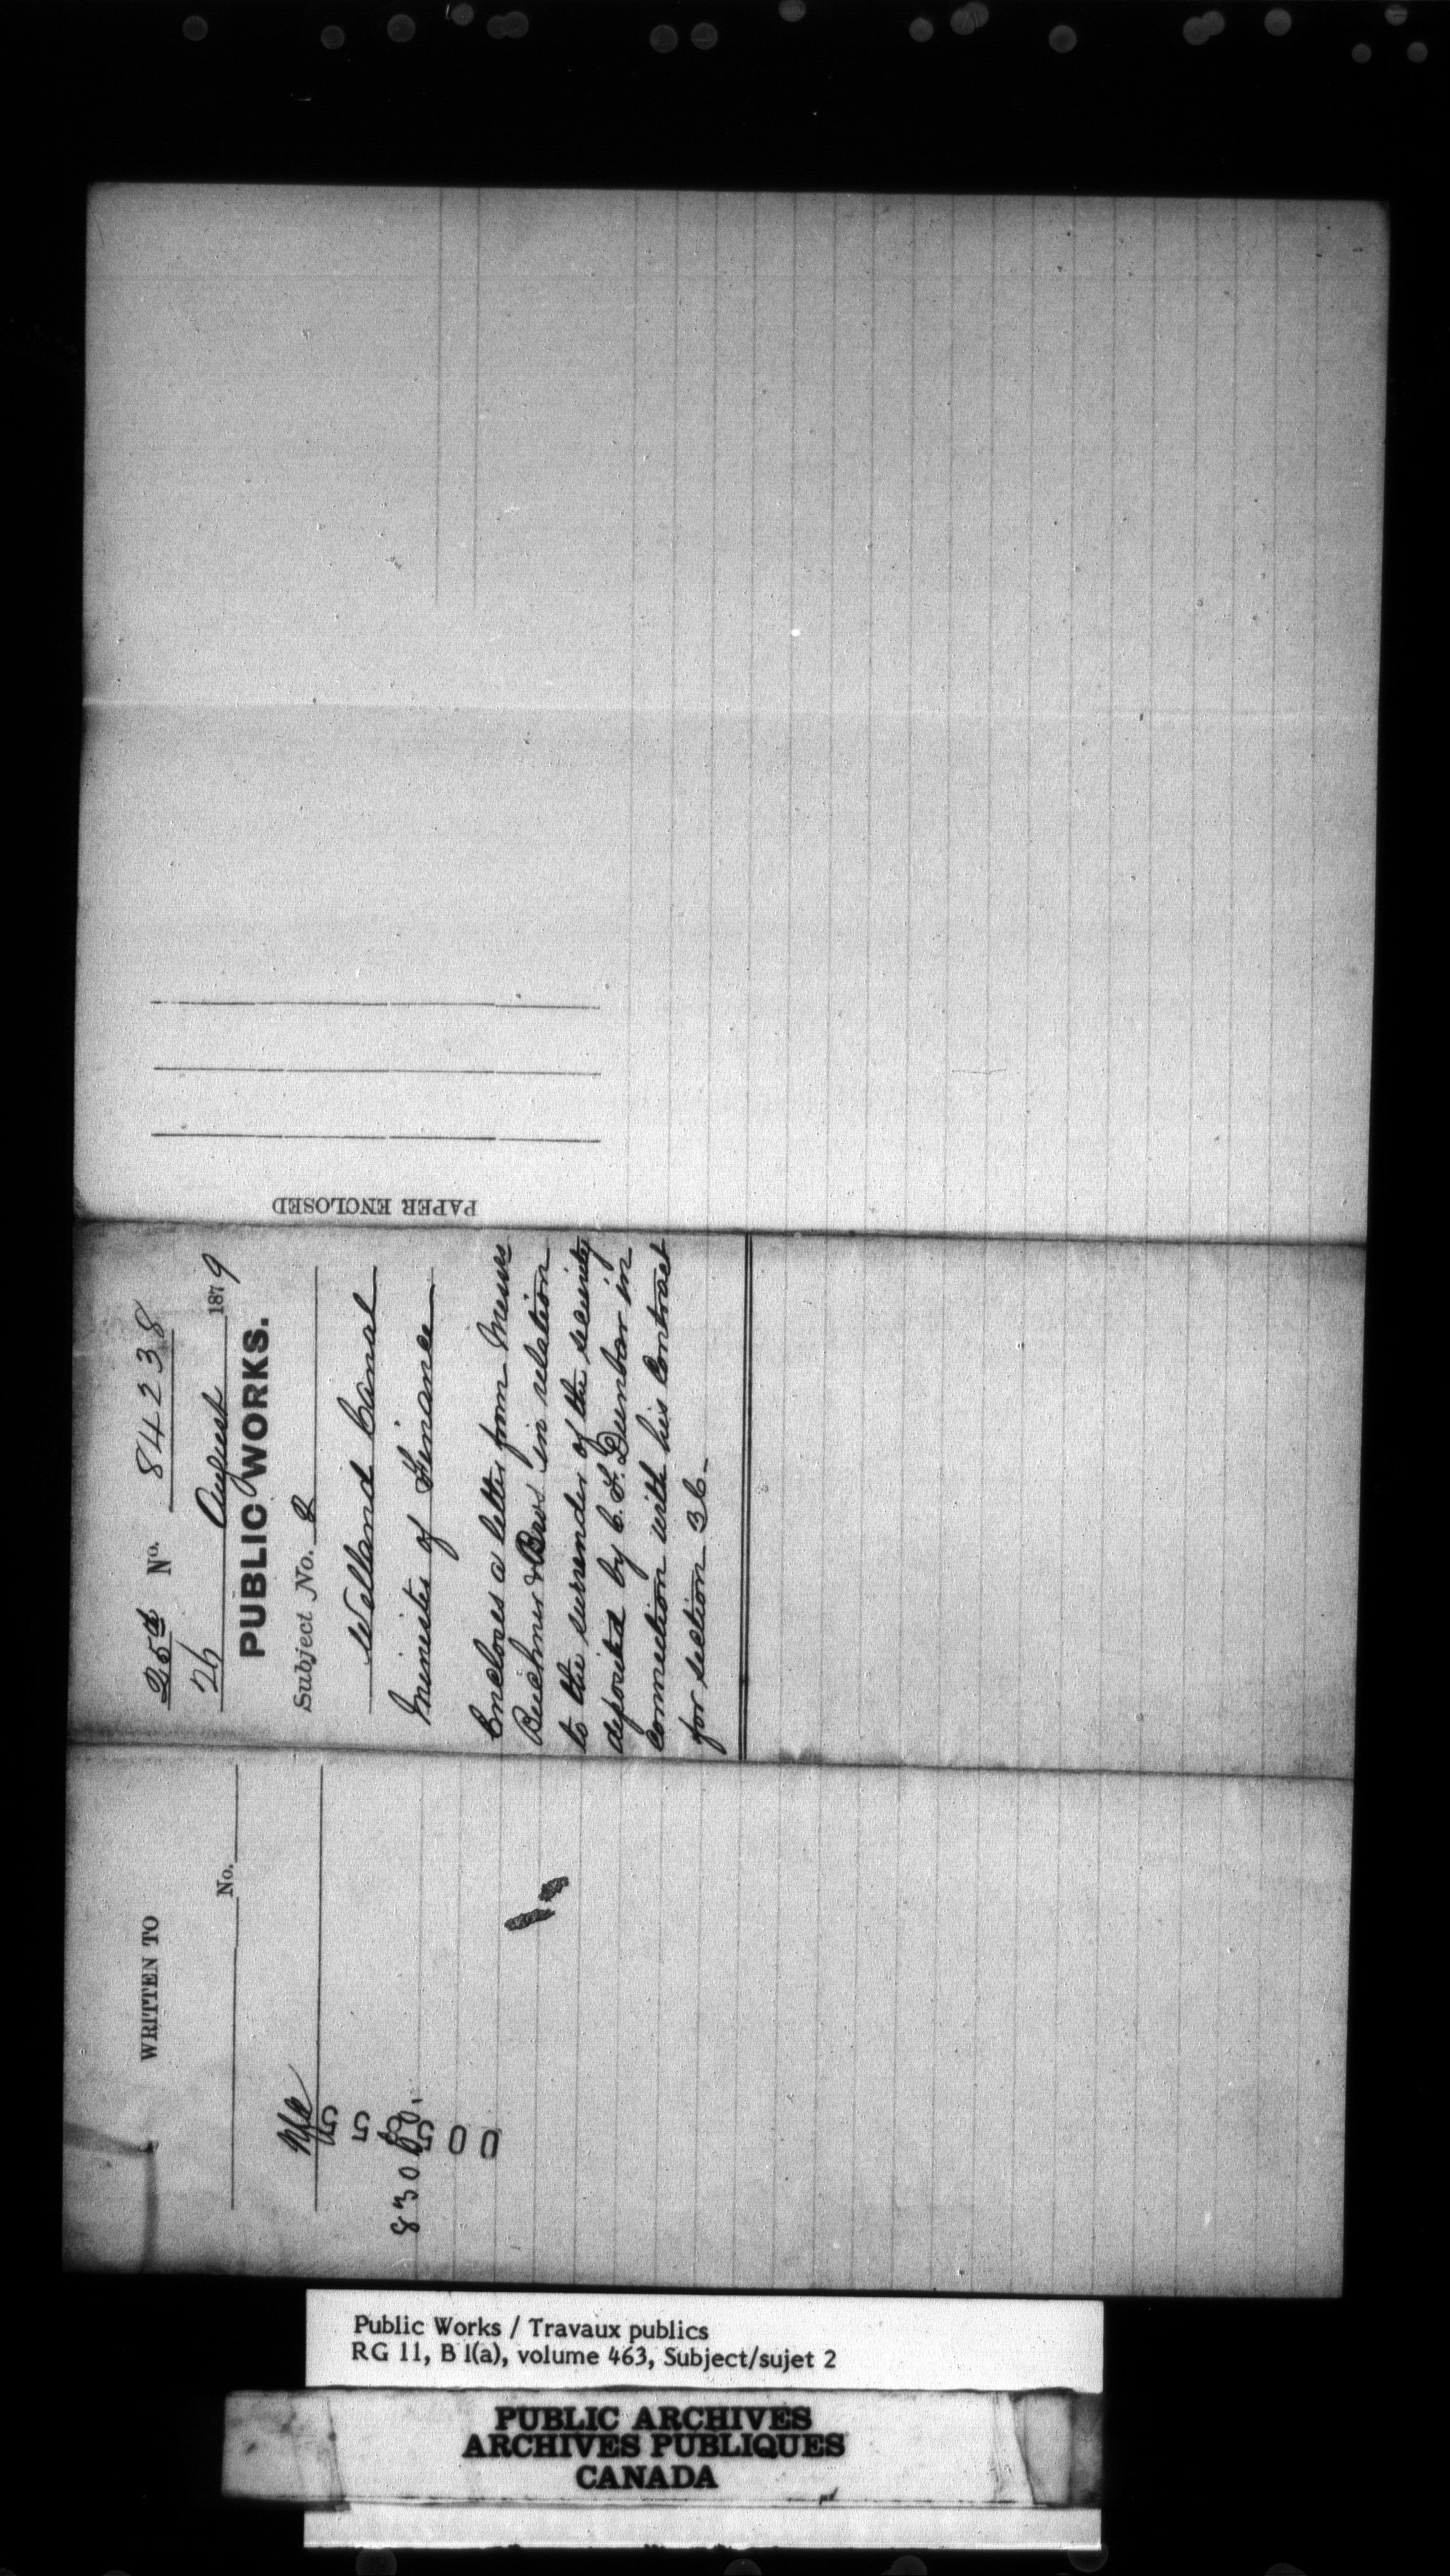 WRITTEN TO
No.
83080.
005855
25th No. 84238
26 August 1879
PUBLIC WORKS.
Subject No. 2
Welland Canal
Minister of Finance
Encloses a letter from Messrs
& Bros in relation
to the surrender of the security
deposited by C. F. Dunbar in
connection with his Contract
for section 36-
PAPER ENCLOSED
Public Works / Travaux publics
RG 11, B 1(a), volume 463, Subject/sujet 2
PUBLIC ARCHIVES
ARCHIVES PUBLIQUES
CANADA